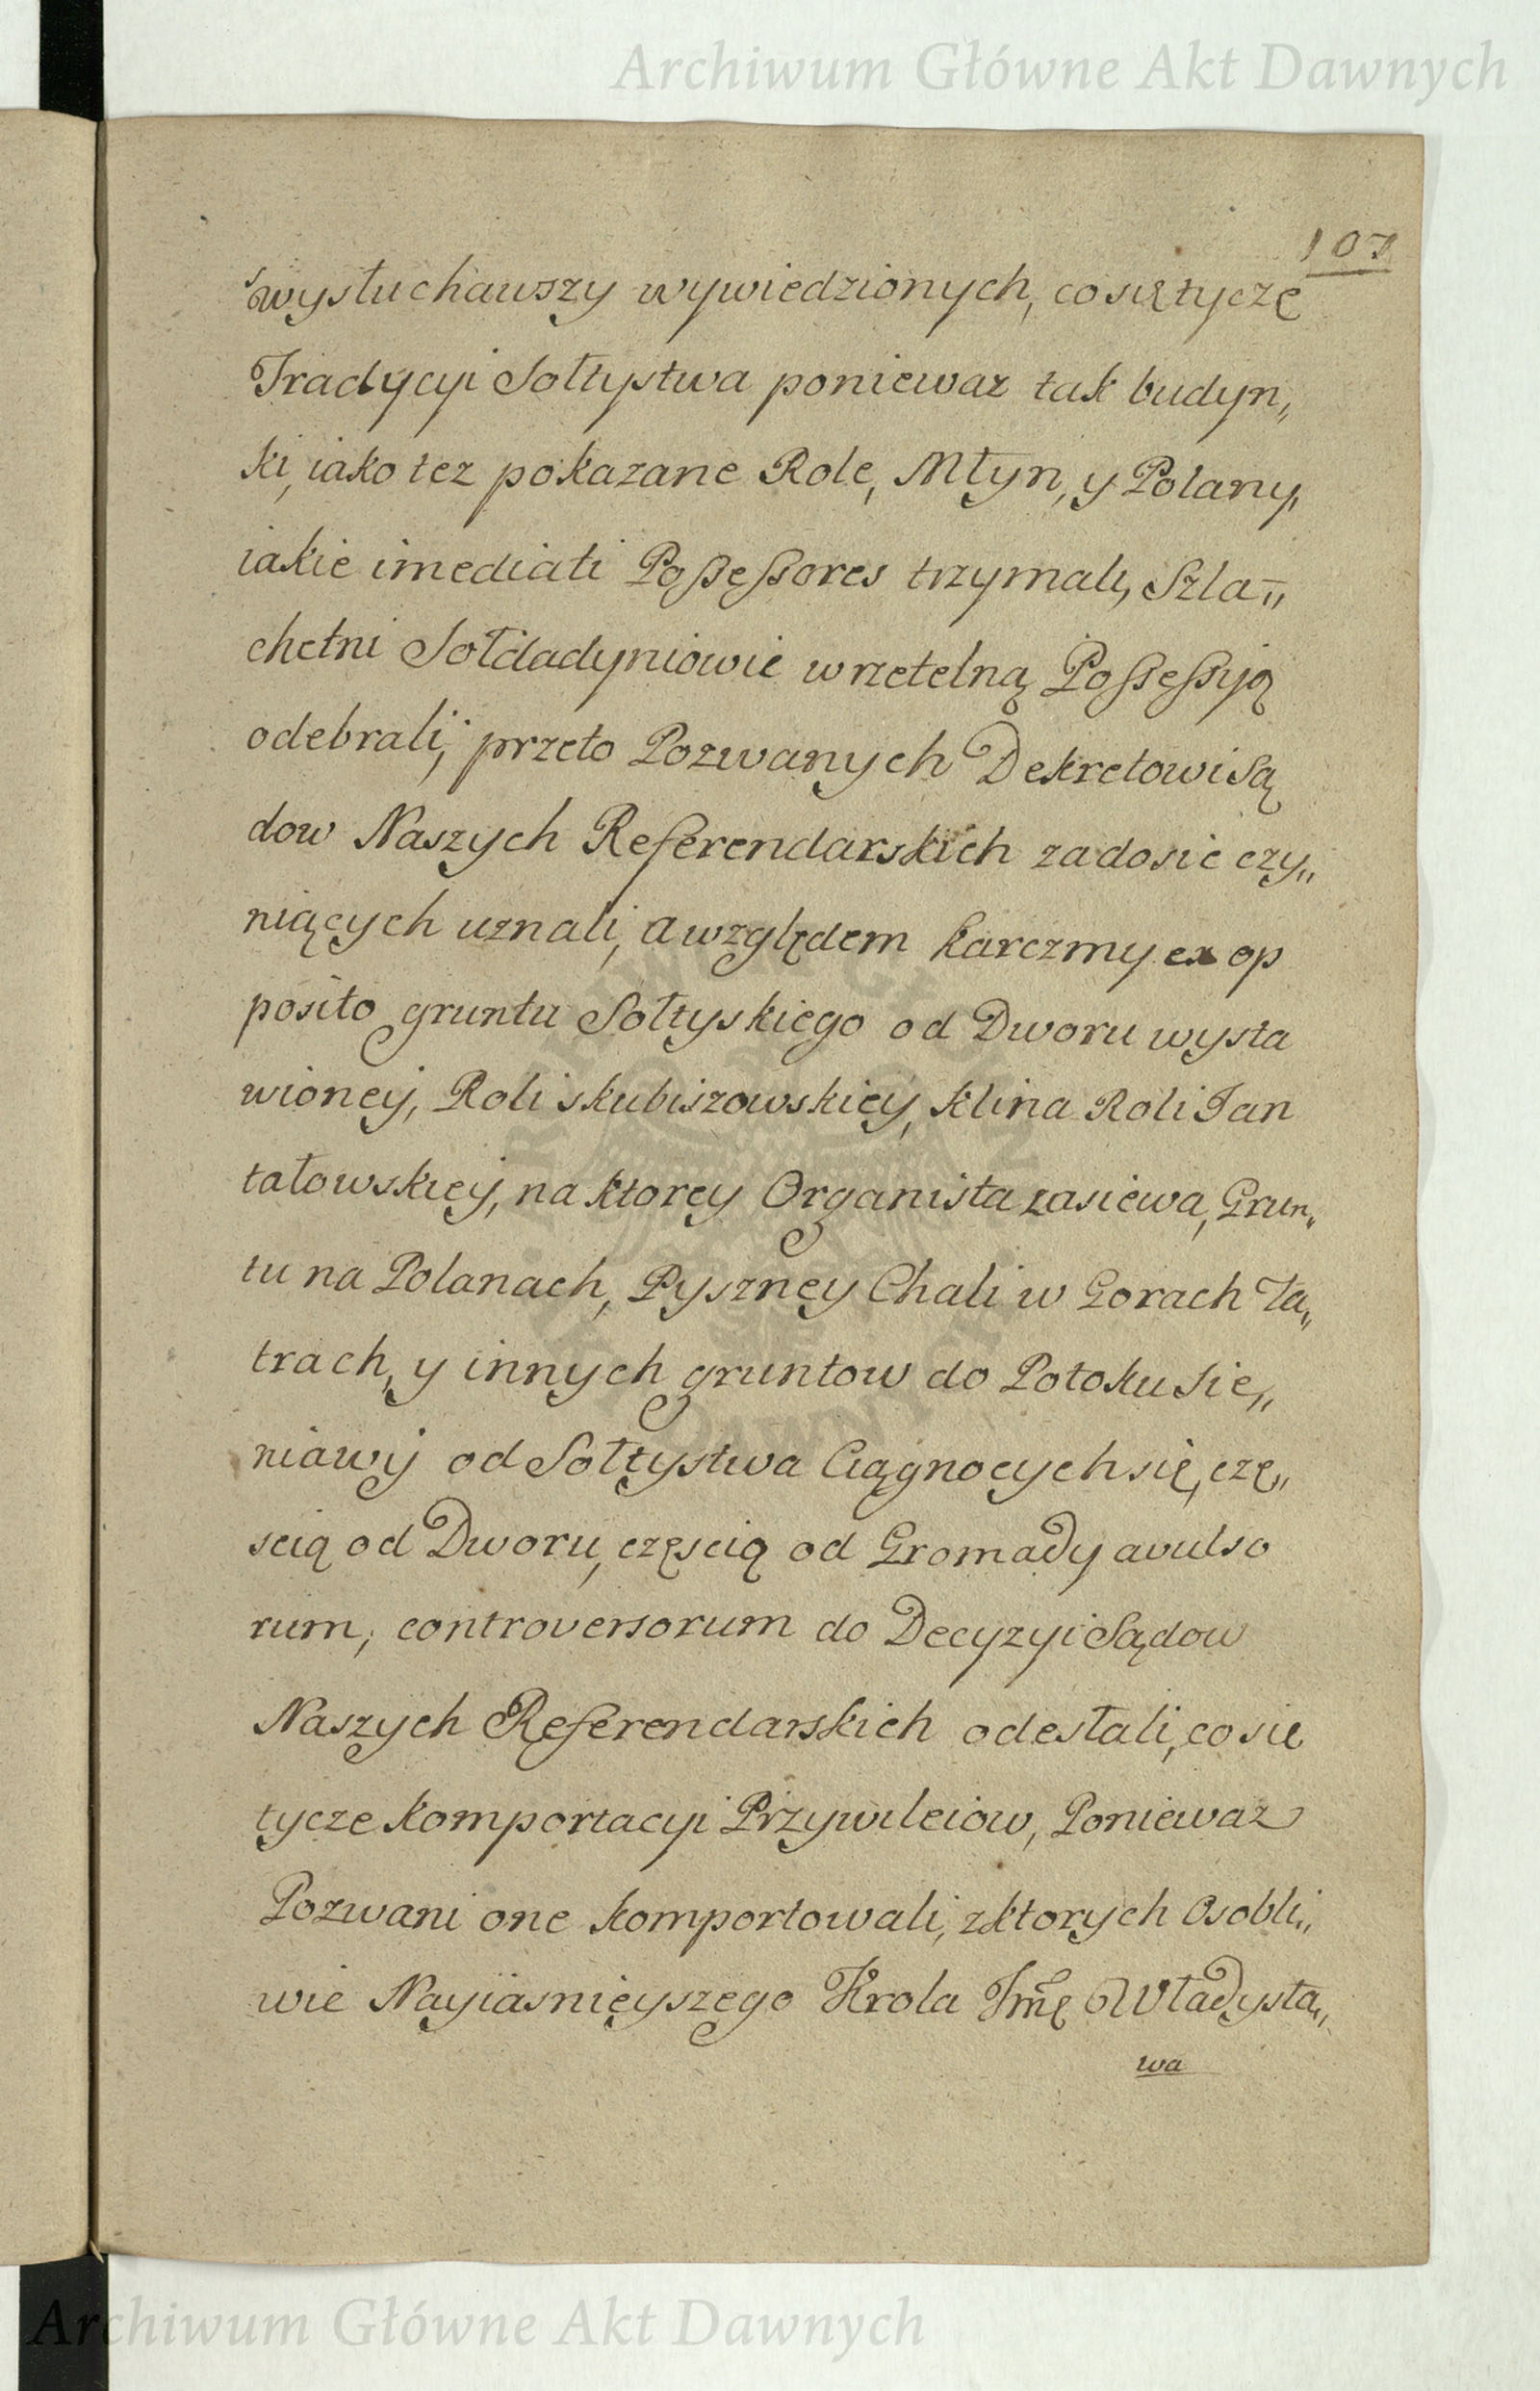 Archiwum Główne Akt Dawnych
107
wysłuchawszy wywiedzionych, co się tycze
Tradycyi Sołtystwa poniewaz tak budyn„
ki, iako tez pokazane Role, Młyn, y Polany,
iakie imediati Possessores trzymali, Szla„
chetni Sołdadyniowie w rzetelną Possessyją
odebrali, przeto Pozwanych Dekretowi Są
dow Naszych Referendarskich zadosic czy„
niących uznali, a względem karczmy ex op
posito gruntu Sołtyskiego od Dworu wysta
wioney, Roli skubiszowskiey, klina Roli Jan
tałowskiey, na ktorey Organista zasiewa, Grun„
tu na Polanach, Pyszney Chali w Gorach Ta„
trach, y innych gruntow do Potoku Sie„
niawy od Sołtystwa Ciągnocych się, czę„
scią od Dworu, częscią od Gromady avulso
rum, controversorum do Decyzyi Sądow
Naszych Referendarskich odesłali, co sie
tycze komportacyi Przywileiow, Poniewaz
Pozwani one komportowali, z ktorych Osobli„
wie Nayiasnieyszego Krola Jmę Władysła„
wa
Archiwum Główne Akt Dawnych